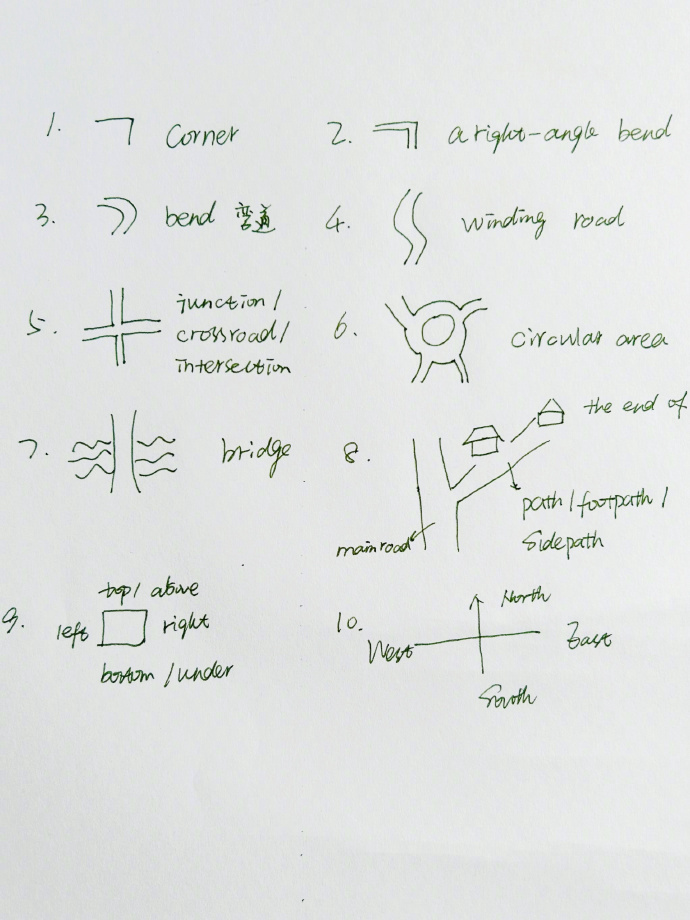 1. Corner
2. a right-angle bend
3. bend 弯道
4. winding road
5. junction /
crossroad /
intersection
6. circular area
7. bridge
8. the end of
path / footpath /
sidepath
main road
9. top / above
left right
bottom / under
10. North
West East
South